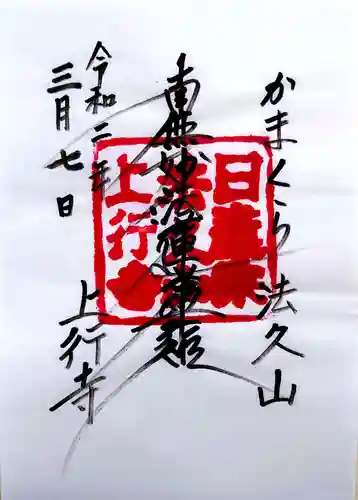 かまくら 法久山
南無妙法蓮華経
令和二年
三月七日
上行寺
日蓮宗
上行